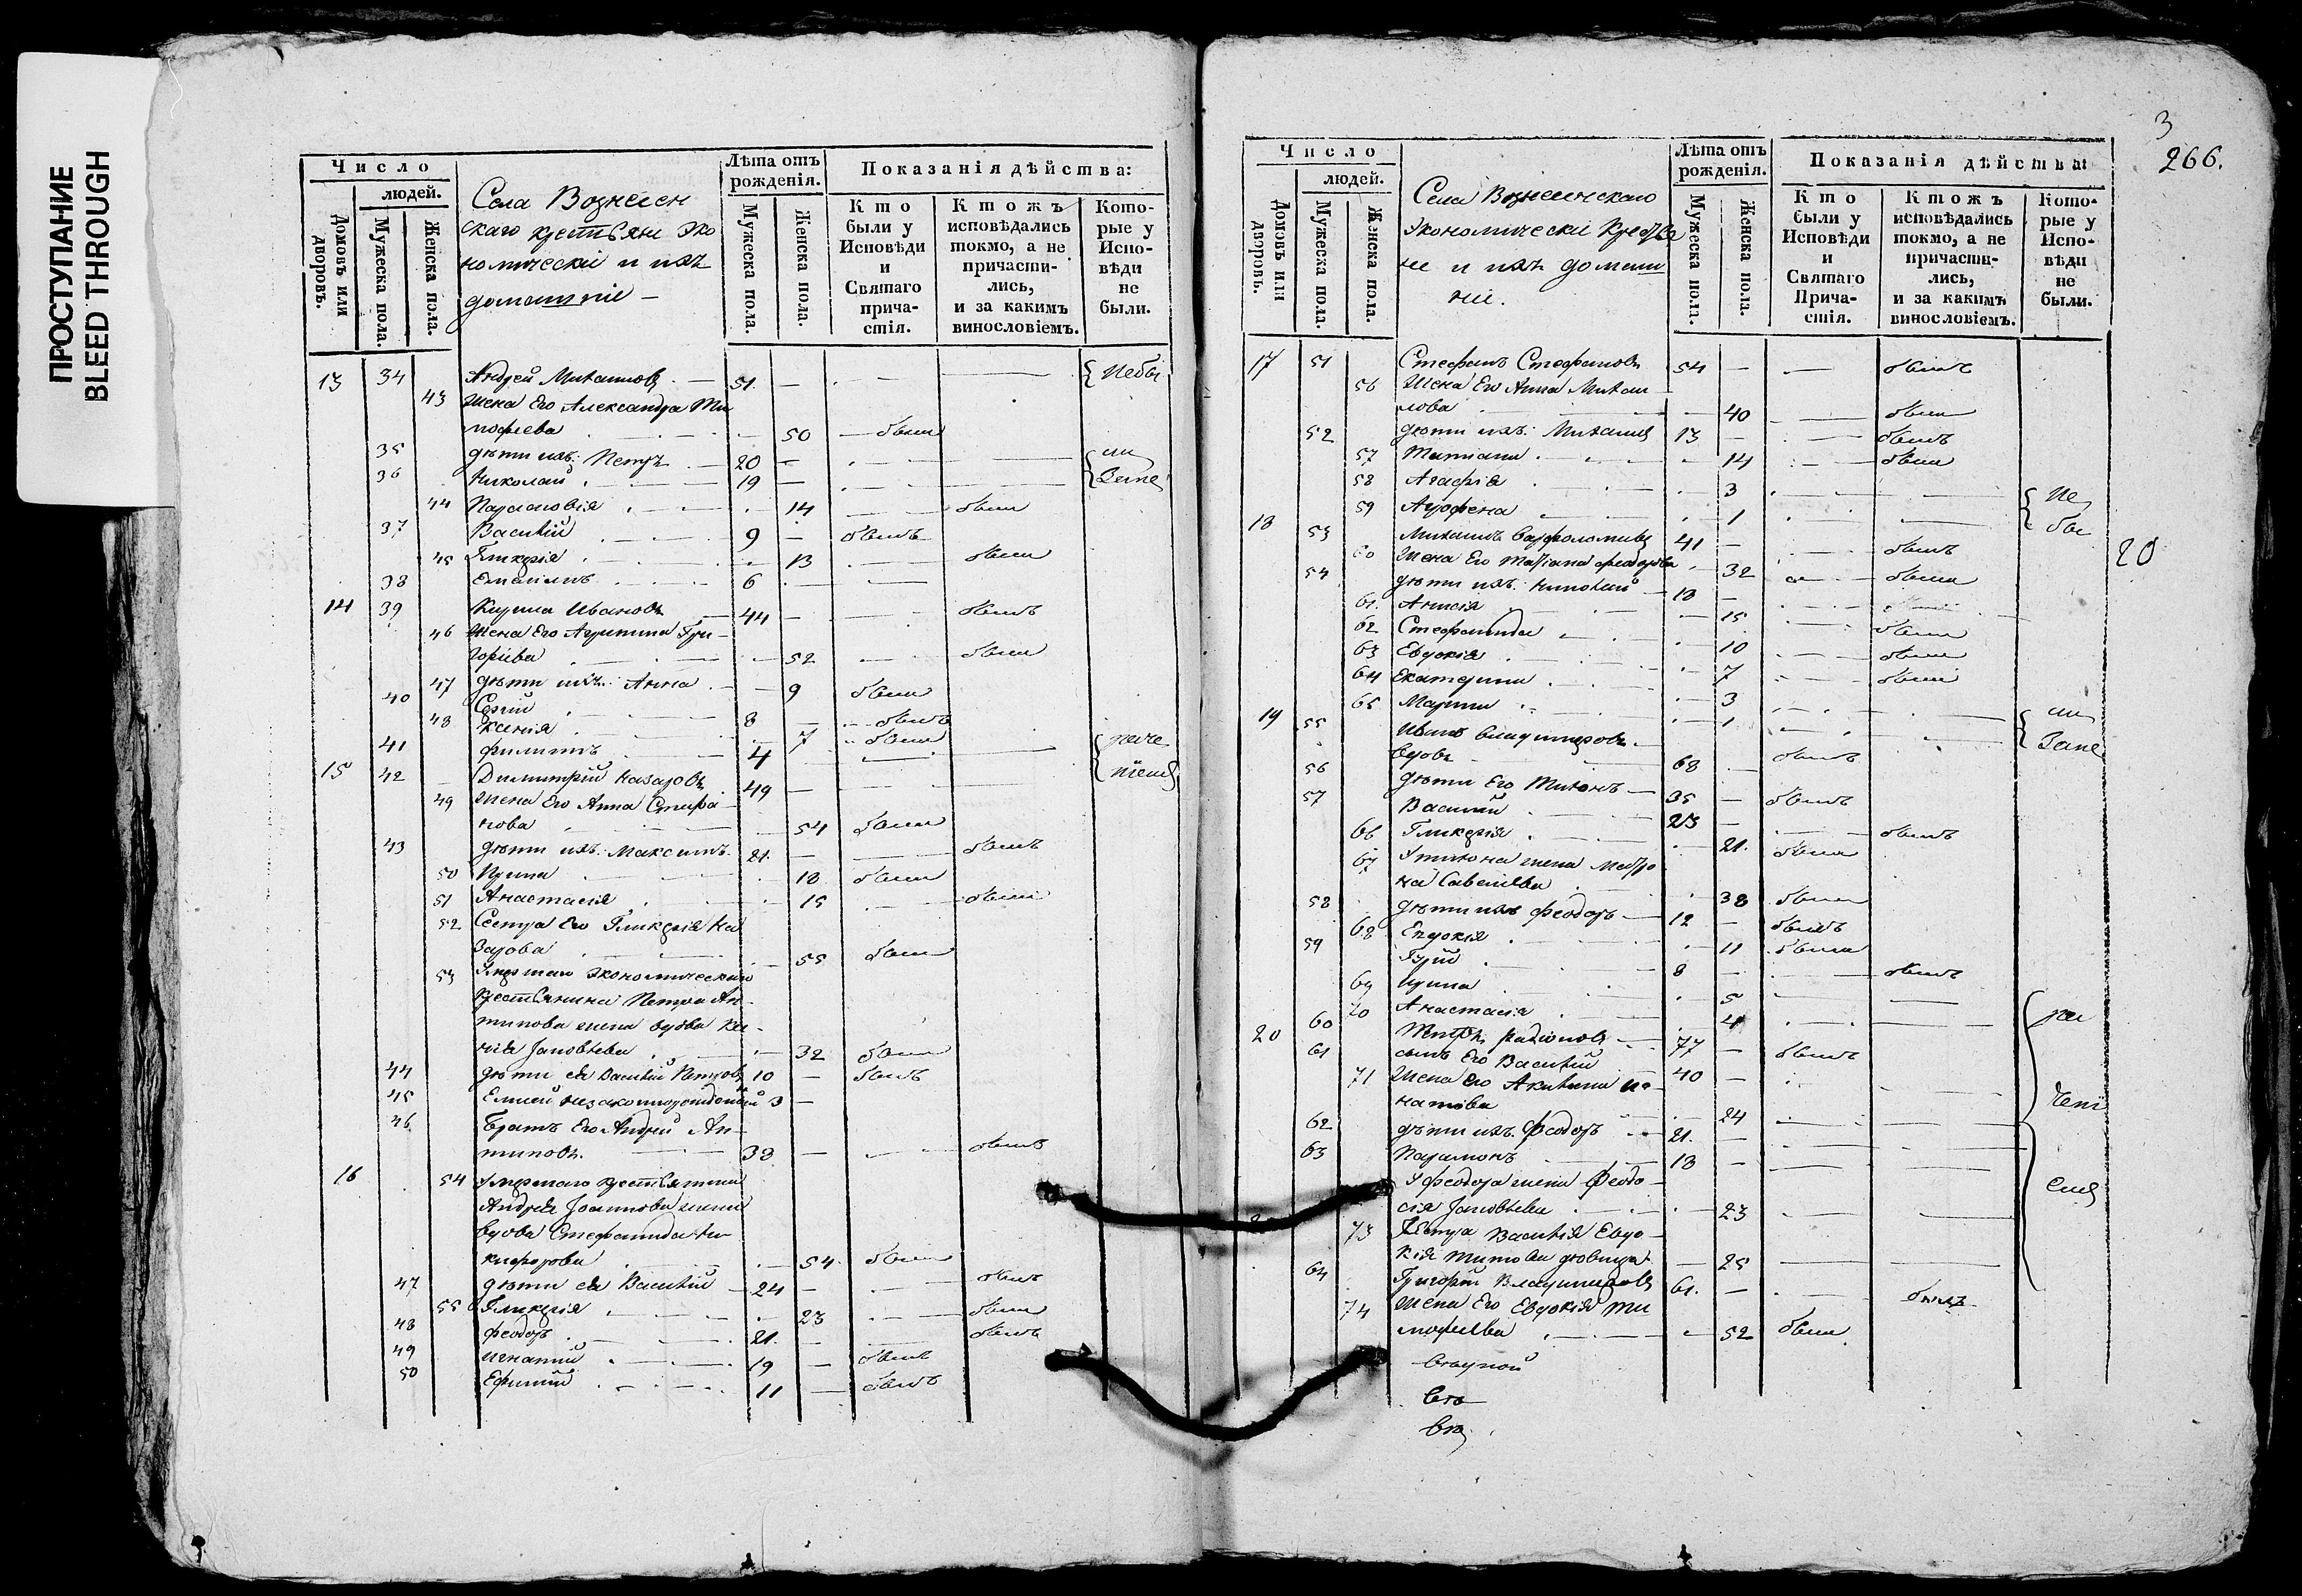 ПРОСТУПАНИЕ
BLEED THROUGH
Число
людей.
Домовъ или дворовъ.
Мужеска пола.
Женска пола.
Села Вознесен
скаго крестьяне эко
номически и ихъ
домашніе —
Лѣта отъ рожденія.
Мужеска пола.
Женска пола.
Показанія дѣйства:
Кто были у Исповѣди и Святаго причастія.
Ктожъ исповѣдались токмо, а не причастились, и за какимъ винословіемъ.
Которые у Исповѣди не были.
13 34 Андрей Михаиловъ 51
43 жена Его Александра Ти
мофеева 50 были
35 дѣти ихъ: Петръ 20
36 Николай 19
44 Парасковія 14 были
37 Василій 9 былъ
45 Гликерія 13 были
38 6
14 39 Кирила Ивановъ 44 былъ
46 жена Его Агрипина Гри
горіева 52 были
47 дѣти ихъ: Анна 9 были
40 Сергій 8 былъ
48 Ксенія 7 были
41 филиппъ 4
15 42 Димитрій Назаровъ 49
49 жена Его Анна Стефа
нова 54 были
43 дѣти ихъ: Максимъ 21 былъ
50 Ирина 18 были
51 Анастасія 15 были
52 Сестра Его Гликерія На
зарова 55 были
53 Умершаго экономическаго
крестьянина Петра Ан
типова жена вдова Ксе
нія Іаковлева 32 были
44 дѣти ея Василій Петровъ 10 былъ
45 незаконнорожденный 3
46 Братъ Его Андрей Ан
типовъ 38 былъ
16 54 Умершаго крестьянина
Андрея Іоаннова жена
вдова Стефанида Ни
кифорова 54 были
47 дѣти ея Василій 24 былъ
55 Гликерія 23 были
48 феодоръ 21 былъ
49 игнатій 19 былъ
50 Ефимій 11 былъ
3
266.
Число
людей.
Домовъ или дворовъ.
Мужеска пола.
Женска пола.
Села Вознесенскаго
Экономически Крестья
не и ихъ домаш
ніе.
Лѣта отъ рожденія.
Мужеска пола.
Женска пола.
Показанія дѣйства:
Кто были у Исповѣди и Святаго Причастія.
Ктожъ исповѣдались токмо, а не причастились, и за какимъ винословіемъ.
Которые у Исповѣди не были.
17 51 Стефанъ Стефановъ 54 былъ
56 Жена Его Анна Михаи
лова 40 были
52 дѣти ихъ: Михаилъ 13 былъ
57 Татіана 14 были
58 Агафія 3
59 Агрофена 1
18 53 Михаилъ Варфоломеевъ 41 былъ
60 Жена Его Татіана феодорова 32 были
54 дѣти ихъ: Николай 18
61 Анисія 15 были
62 Стефанида 10 были
63 Евдокія 7 были
64 Екатерина 3
65 Марина 1
19 55 Иванъ Владимеровъ
вдовъ 68 былъ
56 дѣти Его Тихонъ 35 былъ
57 Василій 23 былъ
66 Гликерія 21 были
67 У тихона жена Матро
на Савельева 38 были
58 дѣти ихъ феодоръ 12 былъ
68 Евдокія 11 были
59 Гурій 8 былъ
69 Ирина 5
70 Анастасія 4
20 60 Петръ Радіоновъ 77 былъ
61 сынъ Его Василій 40
71 Жена Его Акилина Иг
натова 24
62 дѣти ихъ феодоръ 21
63 Парамонъ 18
У феодора жена Феодо
сія Іаковлева 23
73 Сестра Василія Евдо
кія Титова дѣвица 25
64 Григорій Владимеровъ 61 былъ
74 Жена Его Евдокія Ти
мофеева 52 были
20